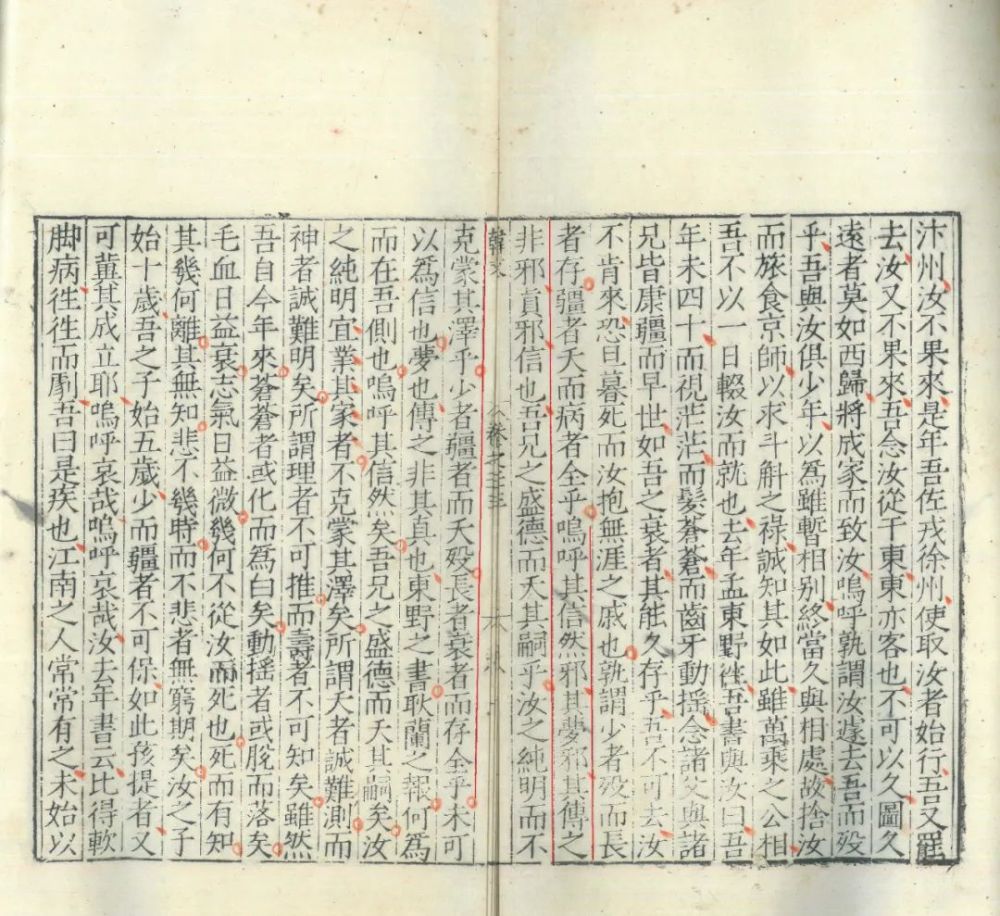 汴州汝不果來是年吾佐戎徐州使取汝者始行吾又罷
去汝又不果來吾念汝從于東東亦客也不可以久圖久
遠者莫如西歸將成家而致汝嗚呼孰謂汝遽去吾而歿
乎吾與汝俱少年以爲雖暫相别終當久與相處故捨汝
而旅食京師以求斗斛之祿誠知其如此雖萬乘之公相
吾不以一日輟汝而就也去年孟東野徃吾書與汝曰吾
年未四十而視茫茫而髮蒼蒼而齒牙動摇念諸父與諸
兄皆康疆而早世如吾之衰者其能久存乎吾不可去汝
不肯來恐旦暮死而汝抱無涯之戚也孰謂少者歿而長
者存疆者夭而病者全乎嗚呼其信然邪其夢邪其傳之
非邪真邪信也吾兄之盛德而夭其嗣乎汝之純明而不
韓文 卷之二三
克蒙其澤乎少者疆者而夭歿長者衰者而存全乎未可
以爲信也夢也傳之非其真也東野之書耿蘭之報何爲
而在吾側也嗚呼其信然矣吾兄之盛德而夭其嗣矣汝
之純明宜業其家者不克蒙其澤矣所謂天者誠難測而
神者誠難明矣所謂理者不可推而壽者不可知矣雖然
吾自今年來蒼蒼者或化而爲白矣動摇者或脫而落矣
毛血日益衰志氣日益微幾何不從汝而死也死而有知
其幾何離其無知悲不幾時而不悲者無窮期矣汝之子
始十歲吾之子始五歲少而疆者不可保如此孩提者又
可冀其成立耶嗚呼哀哉嗚呼哀哉汝去年書云比得軟
脚病徃徃而劇吾曰是疾也江南之人常常有之未始以